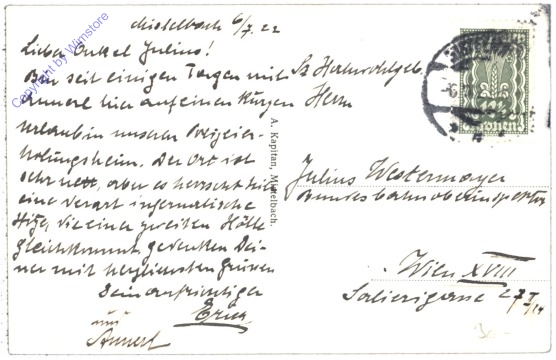 Mistelbach 6/7. 22
Lieber Onkel Julius!
Bin seit einigen Tagen mit
Annerl hier auf einen kurzen
Urlaub in unserem
holungsheim. Der Ort ist
sehr nett, aber es herrscht hier
eine derart infernalische
Hitze, die einer zweiten Hölle
gleichkommt. gedenken Dei-
ner mit herzlichsten Grüssen
Dein aufrichtiger
Erich
und
Annerl
A. Kapitan, Mistelbach.
Sr Hochwohlgeb.
Herrn
Julius Westermayer
Bundesbahnoberinspektor
Wien XVIII
Salierigasse 27
Copyright by Wimstore